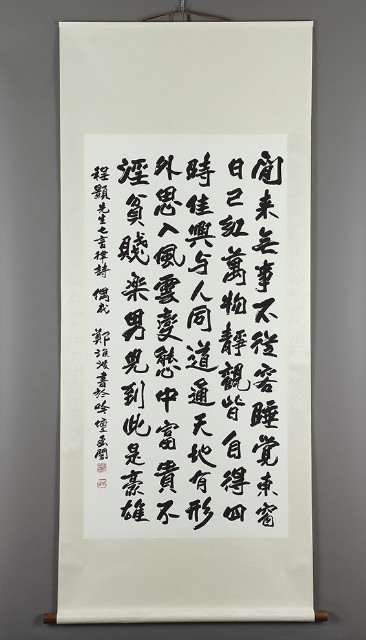 閒来無事不從容睡覺東窗
日已紅萬物靜觀皆自得四
時佳興与人同道通天地有形
外思入風雲變態中富貴不
淫貧賤樂男兒到此是豪雄
程顥先生七言律詩 偶成 鄭